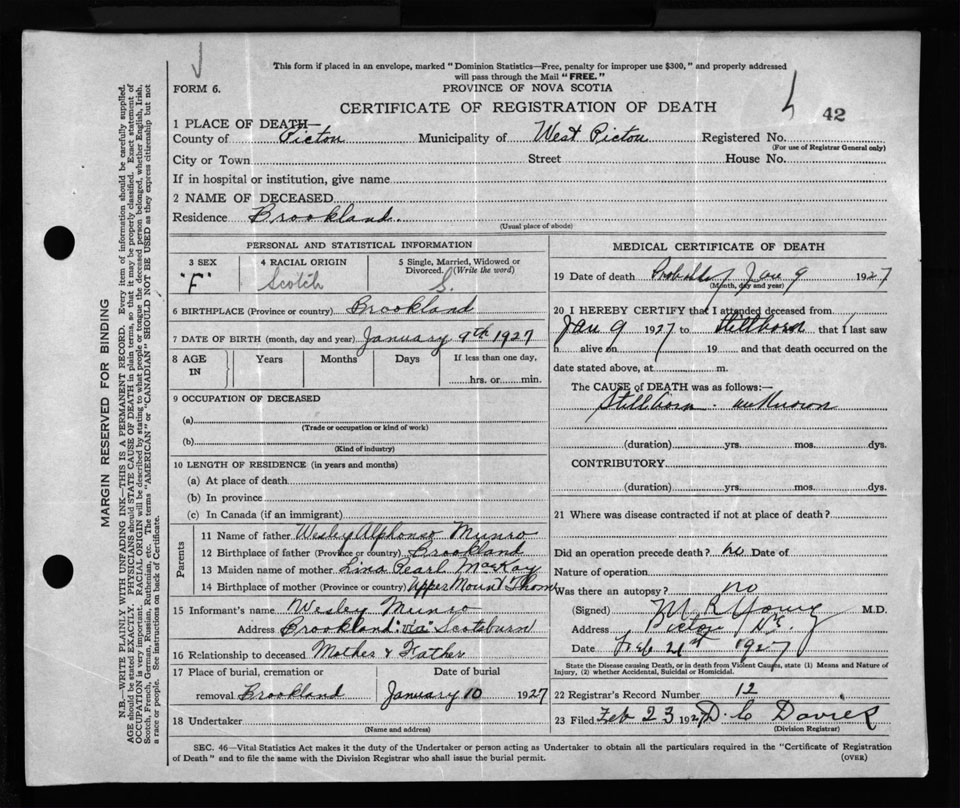 This form if placed in an envelope, marked "Dominion Statistics—Free, penalty for improper use $300," and properly addressed
will pass through the Mail "FREE."
FORM 6.
PROVINCE OF NOVA SCOTIA
CERTIFICATE OF REGISTRATION OF DEATH
42
1 PLACE OF DEATH—
County of Pictou Municipality of West Pictou Registered No.
(For use of Registrar General only)
City or Town Street House No.
If in hospital or institution, give name
2 NAME OF DECEASED
Residence Brookland.
(Usual place of abode)
PERSONAL AND STATISTICAL INFORMATION
3 SEX 4 RACIAL ORIGIN 5 Single, Married, Widowed or
Divorced. (Write the word)
"F" Scotch S.
6 BIRTHPLACE (Province or country) Brookland
7 DATE OF BIRTH (month, day and year) January 9th 1927
8 AGE IN Years Months Days If less than one day,
hrs. or min.
9 OCCUPATION OF DECEASED
(a)
(Trade or occupation or kind of work)
(b)
(Kind of industry)
10 LENGTH OF RESIDENCE (in years and months)
(a) At place of death
(b) In province
(c) In Canada (if an immigrant)
Parents
11 Name of father Wesley Alphonso Munro
12 Birthplace of father (Province or country) Brookland
13 Maiden name of mother Lina Pearl MacKay
14 Birthplace of mother (Province or country) Upper Mount Thom
15 Informant's name Wesley Munro
Address Brookland "via" Scotsburn
16 Relationship to deceased Mother & Father
17 Place of burial, cremation or Date of burial
removal Brookland January 10 1927
18 Undertaker
(Name and address)
MEDICAL CERTIFICATE OF DEATH
19 Date of death Probably Jan 9 1927
(Month, day and year)
20 I HEREBY CERTIFY that I attended deceased from
Jan 9 1927 to Stillborn that I last saw
h alive on 19 and that death occurred on the
date stated above, at m.
The CAUSE of DEATH was as follows:—
Stillborn. unknown
(duration) yrs. mos. dys.
CONTRIBUTORY
(duration) yrs. mos. dys.
21 Where was disease contracted if not at place of death?
Did an operation precede death? no Date of
Nature of operation
Was there an autopsy? no
(Signed) M R Young M.D.
Address Pictou N.S.
Date Feb 21st 1927
State the Disease causing Death, or in death from Violent Causes, state (1) Means and Nature of
Injury, (2) whether Accidental, Suicidal or Homicidal.
22 Registrar's Record Number 12
23 Filed Feb 23 1927 D. C Davies
(Division Registrar)
SEC. 46—Vital Statistics Act makes it the duty of the Undertaker or person acting as Undertaker to obtain all the particulars required in the "Certificate of Registration
of Death" and to file the same with the Division Registrar who shall issue the burial permit. (OVER)
MARGIN RESERVED FOR BINDING
N.B.—WRITE PLAINLY WITH UNFADING INK—THIS IS A PERMANENT RECORD. Every item of information should be carefully supplied.
AGE should be stated EXACTLY. PHYSICIANS should STATE CAUSE OF DEATH in plain terms, so that it may be properly classified. Exact statement of
OCCUPATION is very important. RACIAL ORIGIN will be described by stating to what people or tongue the deceased person belonged, whether English, Irish,
Scotch, French, German, Russian, Ruthenian, etc. The terms "AMERICAN" or "CANADIAN" SHOULD NOT BE USED as they express citizenship but not
a race or people. See instructions on back of Certificate.